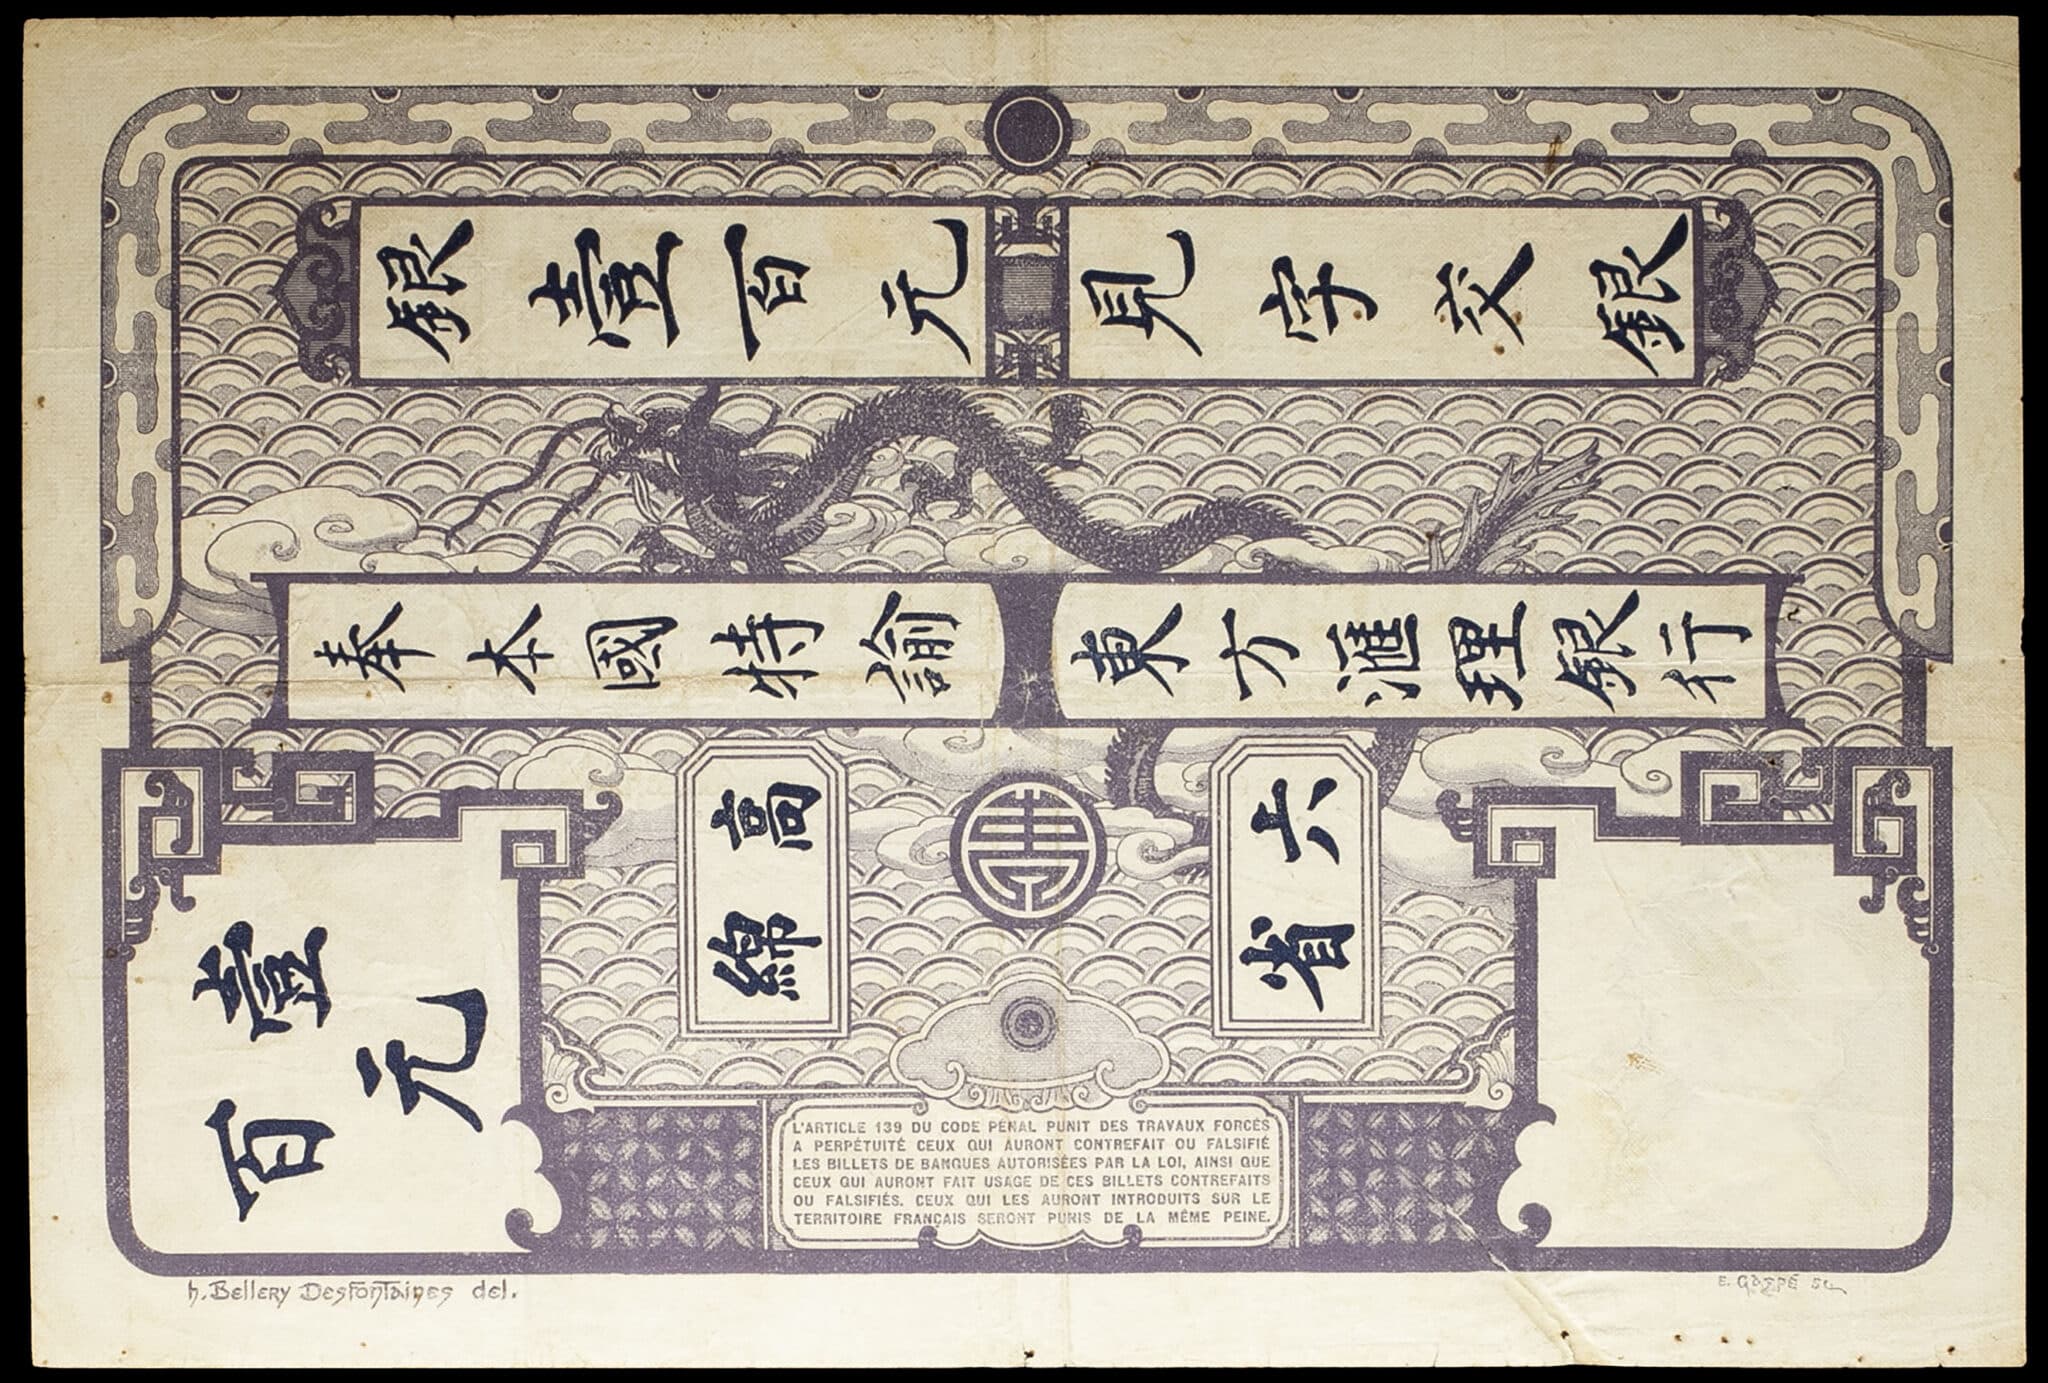 銀壹百元
見字交銀
奉本國特諭
東方滙理銀行
高綿
六省
壹百
元
L'ARTICLE 139 DU CODE PÉNAL PUNIT DES TRAVAUX FORCÉS
A PERPÉTUITÉ CEUX QUI AURONT CONTREFAIT OU FALSIFIÉ
LES BILLETS DE BANQUES AUTORISÉES PAR LA LOI, AINSI QUE
CEUX QUI AURONT FAIT USAGE DE CES BILLETS CONTREFAITS
OU FALSIFIÉS. CEUX QUI LES AURONT INTRODUITS SUR LE
TERRITOIRE FRANÇAIS SERONT PUNIS DE LA MÊME PEINE.
h. Bellery Desfontaines del.
E. Gaspé sc.